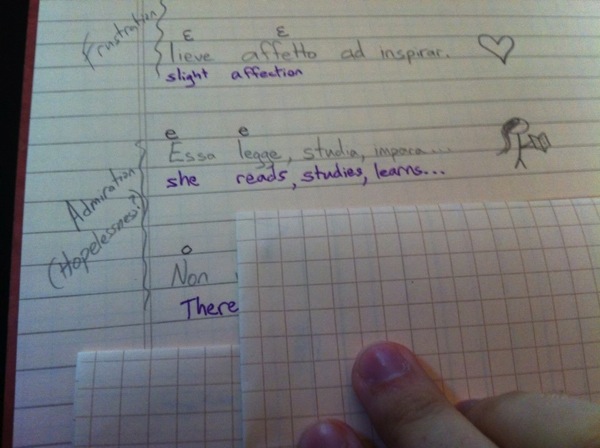 Frustration
ε ε
lieve affetto ad inspirar.
slight affection
e e
Essa legge, studia, impara...
she reads, studies, learns...
Admiration
(Hopelessness?)
o
Non
There